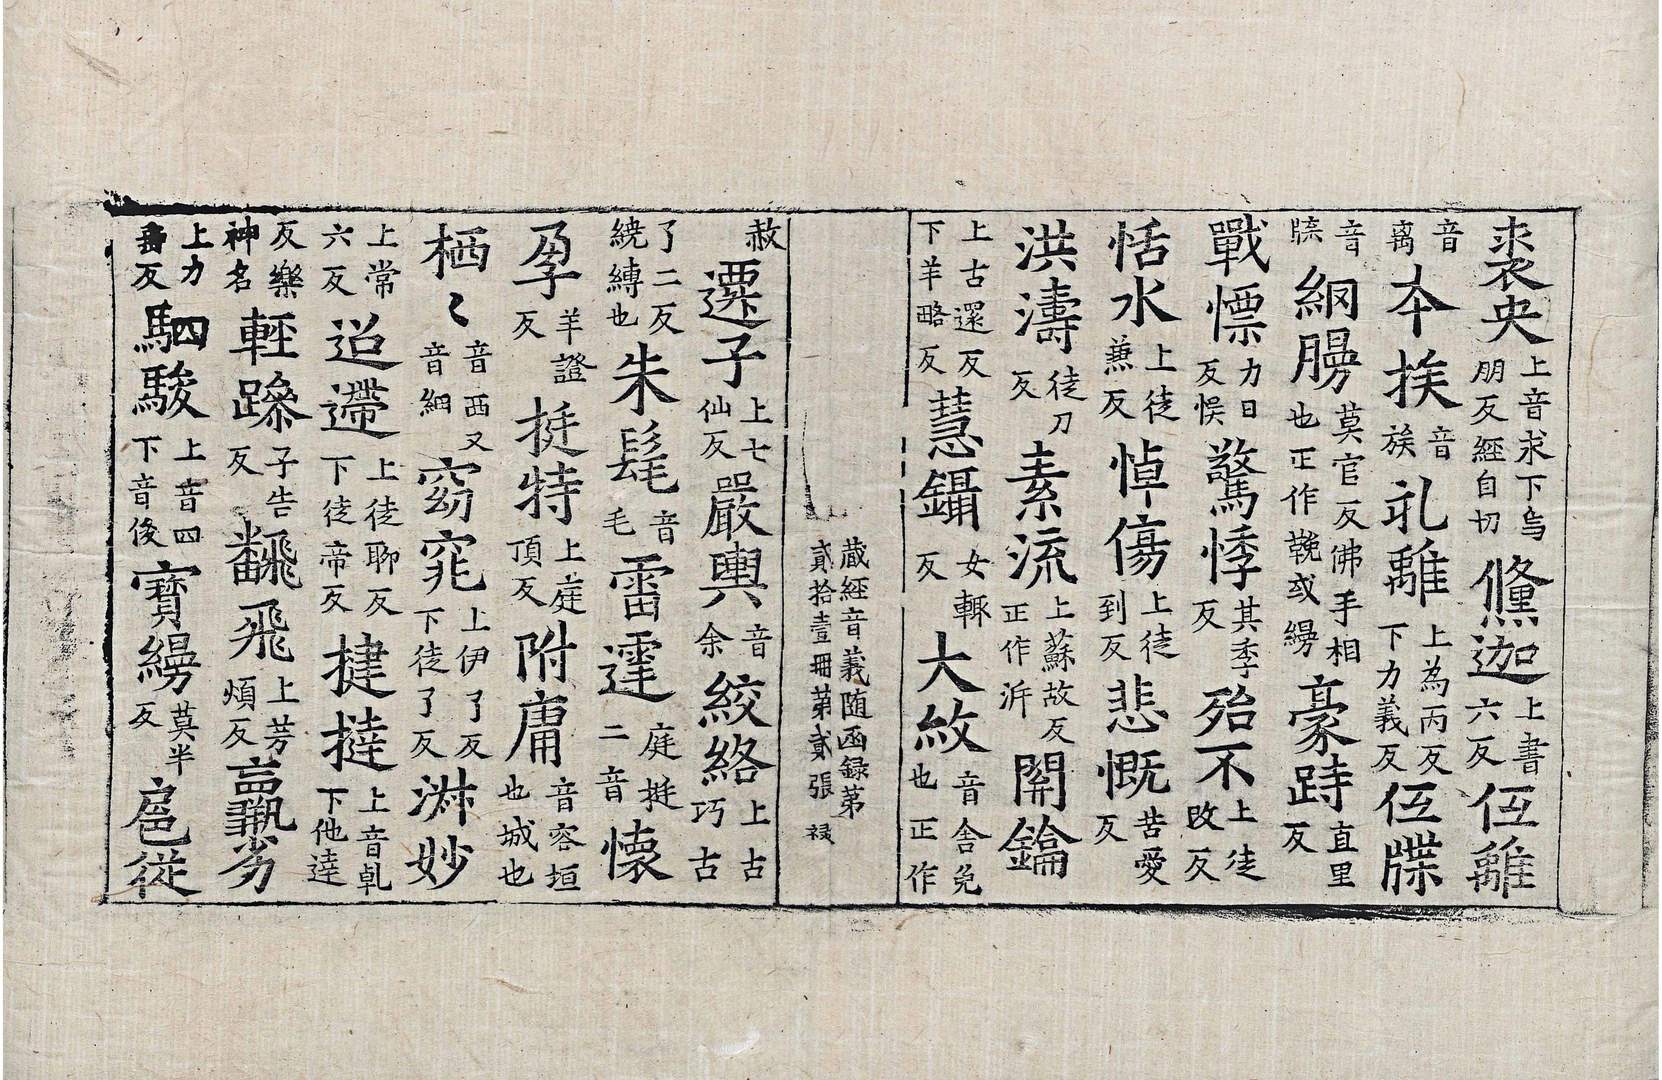 裘央上音求下烏朋反經自切鯈迦上書六反伍離
音离本挨音族乿離上為丙反下力義反伍牒
音牍網膖莫官反佛手相也正作鞔或縵豪跱直里反
戰慓力日反悞驚悸其季反殆不上徒改反
恬水上徒兼反悼傷上徒到反悲慨苦愛反
洪濤徒刀反素流上蘇故反正作泝開鑰
上古還反下羊略反慧鑷女輒反大赦音舍免也正作
藏經音義随函録第貳拾壹冊第貳張 祿
赦遷子上七仙反嚴輿音余絞絡上古巧古
了二反繞縛也朱髦音毛雷霆庭挺二音懷
孕羊證反挺特上庭頂反附庸音容垣也城也
栖〻音西又音細窈窕上伊了反下徒了反淋妙
上常六反迢遰上徒聊反下徒帝反揵撻上音乹下他達
反樂神名輕躁子告反飜飛上芳煩反羸劣
上力垂反駟駿上音四下音後寶縵莫半反扈從